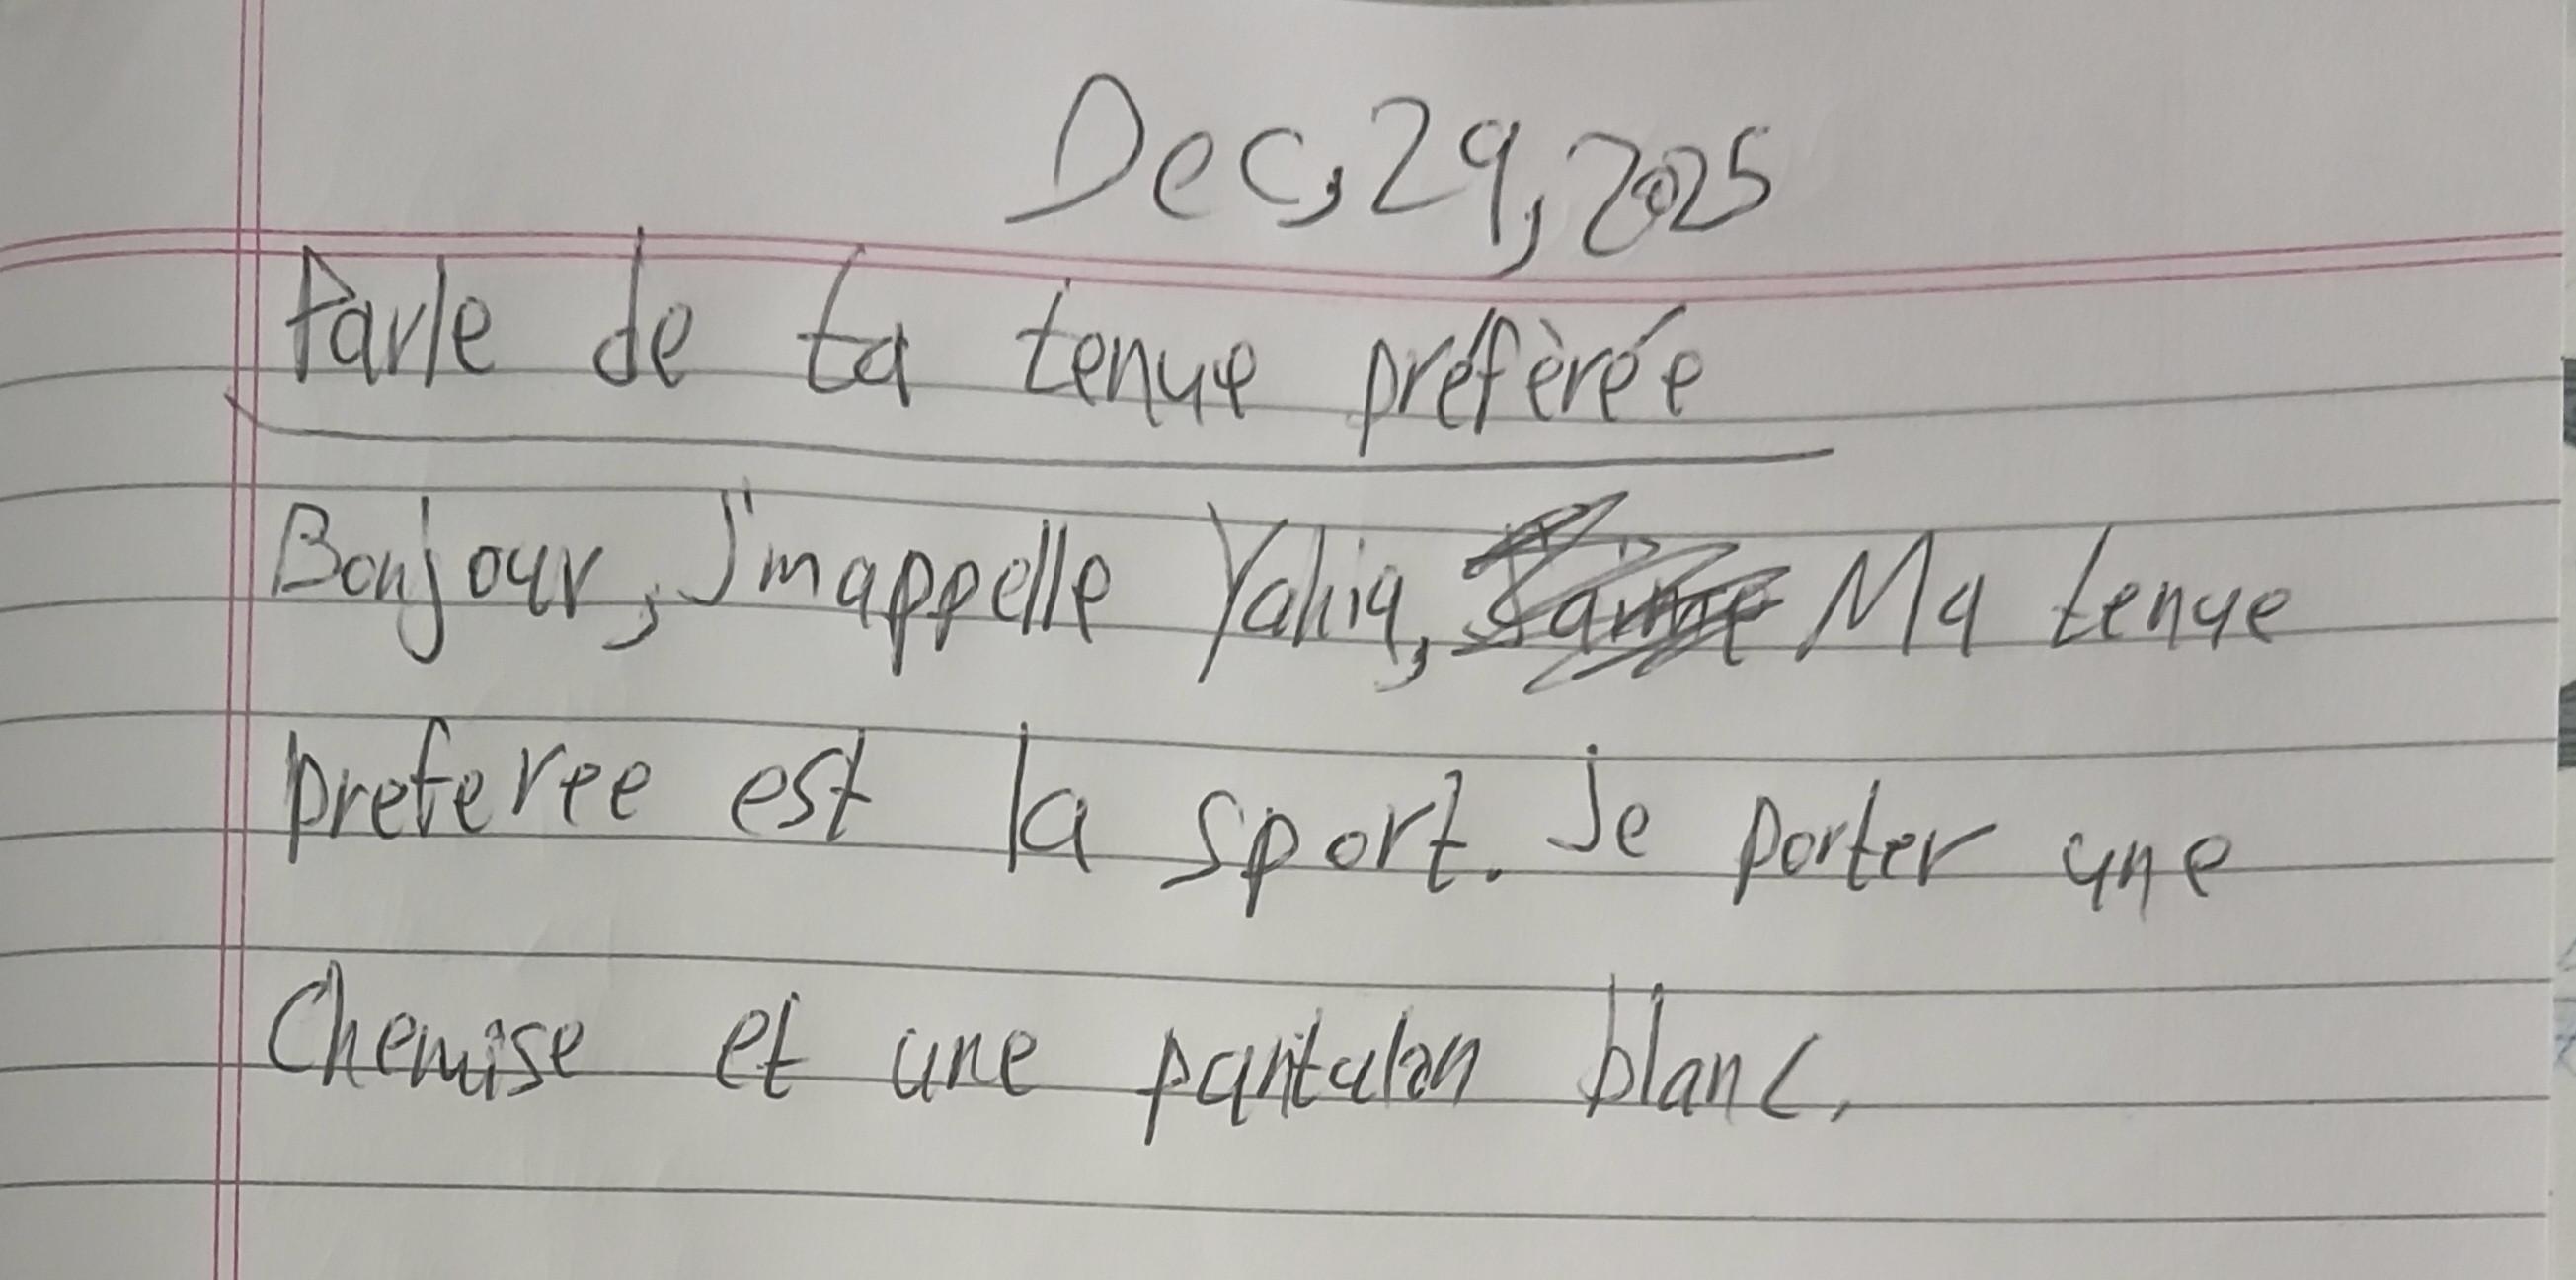 Dec, 29, 2025
Parle de ta tenue préfèrée
Bonjour, J'mappelle Yahia, Ma tenue
preferee est la sport. Je porter une
Chemise et une pantalon blanc.